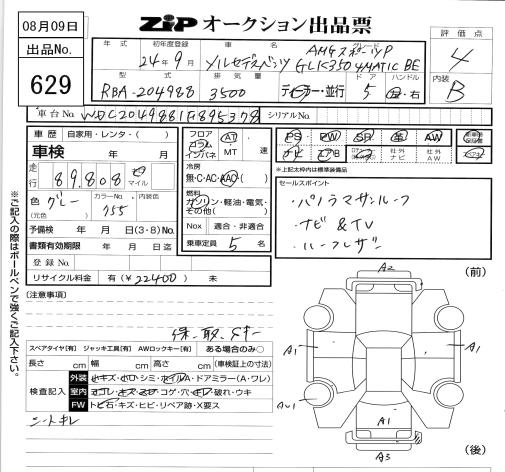 08月09日
ZIP オークション出品票
評価点
4
出品No.
629
年式
初年度登録
24年9月
車名
メルセデスベンツ
グレード
AMGスポーツP
GLK350 4MATIC BE
型式
RBA-204988
排気量
3500
ディーラー・並行
ドア
5
ハンドル
左・右
内装
B
車台No.
シリアルNo.
車歴 自家用・レンタ・( )
車検 年 月
走行
89,808
マイル
色
グレー
(元色)
カラーNo.
755
内装色
予備検 年 月 日(3・8)No.
書類有効期限 年 月 日迄
登録No.
リサイクル料金 有(¥22400) 未
フロア
コラム
インパネ
AT
MT
速
冷房
無・C・AC・AAC
燃料
ガソリン・軽油・電気・その他( )
Nox 適合・非適合
乗車定員 5 名
PS PW SR 革 AW
ナビ エアB
社外ナビ
社外AW
*上記太枠内は標準装備品
セールスポイント
・パノラマサンルーフ
・ナビ&TV
・ハーフレザー
(注意事項)
保、取、スキー
スペアタイヤ[有] ジャッキ工具[有] AWロックキー[有] ある場合のみ○
長さ cm 幅 cm 高さ cm (車検証上の寸法)
検査記入
外装 小キズ・小凹・シミ・ホイルA・ドアミラー(A・ワレ)
室内 ヨゴレ・キズ・スレ・コゲ・穴・キレ・破れ・ウキ
FW トビ石・キズ・ヒビ・リペア跡・X要ス
シートキレ
※ご記入の際はボールペンで強くご記入下さい。
(前)
A2
A1
A1
AU1
A1
A3
(後)